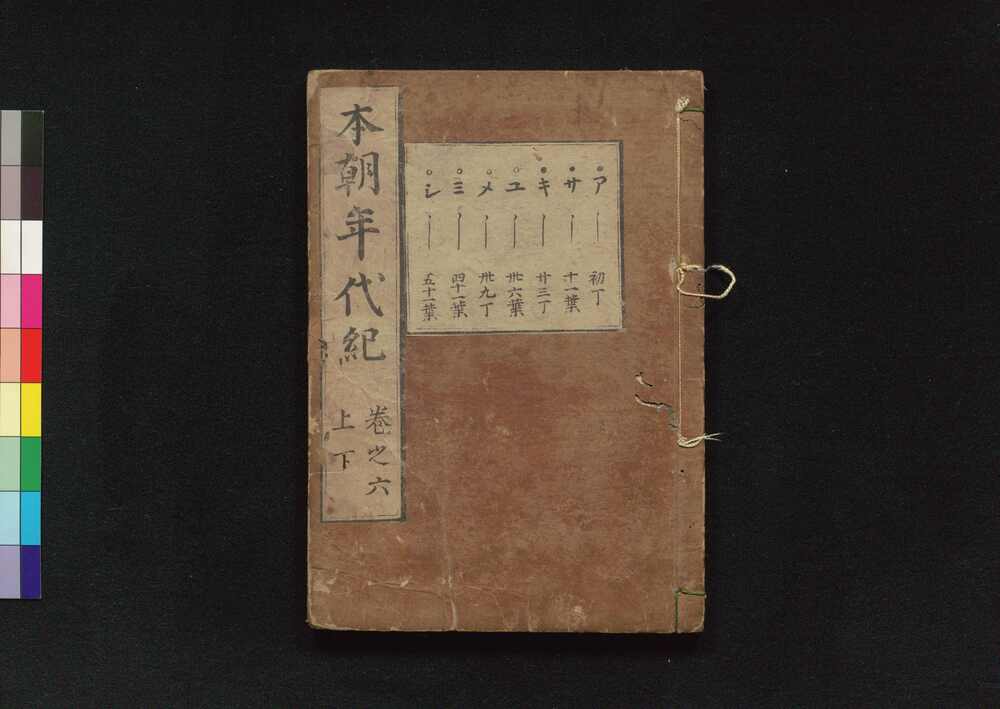 本朝年代紀
巻之六
上下
ア 初丁
サ 十一葉
キ 廿三丁
ユ 卅六葉
メ 卅九丁
ミ 四十一葉
シ 五十一葉